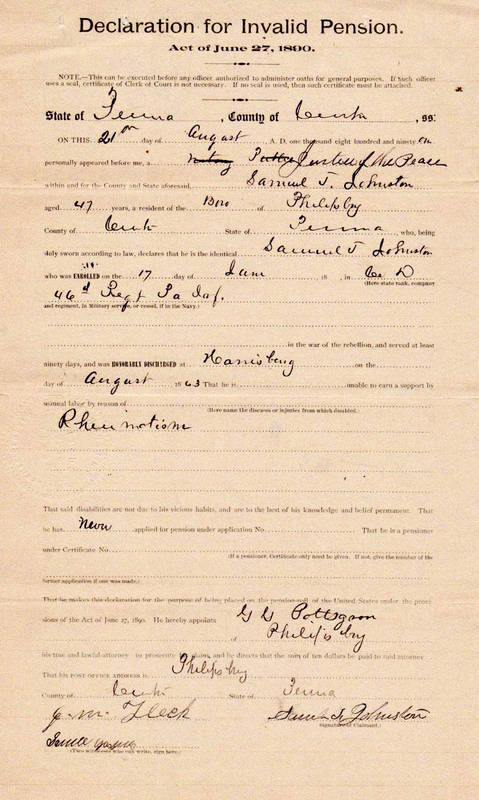 Declaration for Invalid Pension.
Act of June 27, 1890.
NOTE.—This can be executed before any officer authorized to administer oaths for general purposes. If such officer
uses a seal, certificate of Clerk of Court is not necessary. If no seal is used, then such certificate must be attached.
State of Penna, County of Centre, ss:
ON THIS 21st day of August A. D. one thousand eight hundred and ninety one
personally appeared before me, a Notary Justice of the Peace
within and for the County and State aforesaid, Samuel T. Johnston
aged 47 years, a resident of the Boro of Philipsbg
County of Centr State of Penna, who, being
duly sworn according to law, declares that he is the identical Samuel T Johnston
who was ENROLLED on the 17 day of 18 , in Co D
(Here state rank, company
46 Regt Pa Inf.
and regiment, in Military service, or vessel, if in the Navy.)
in the war of the rebellion, and served at least
ninety days, and was HONORABLY DISCHARGED at Harrisburg on the
day of August 1863 That he is unable to earn a support by
manual labor by reason of
(Here name the diseases or injuries from which disabled.)
Rheumatism
That said disabilities are not due to his vicious habits, and are to the best of his knowledge and belief permanent. That
he has Never applied for pension under application No. That he is a pensioner
under Certificate No.
(If a pensioner, Certificate only need be given. If not, give the number of the
former application if one was made.)
That he makes this declaration for the purpose of being placed on the pension-roll of the United States under the provi-
sions of the Act of June 27, 1890. He hereby appoints G G Pottsgron
of Philipsbg
his true and lawful attorney to prosecute his claim, and he directs that the sum of ten dollars be paid to said attorney
That his POST OFFICE ADDRESS is Philipsbg
County of Centr State of Penna
J. M. Fleck Samuel T Johnston
(Signature of Claimant.)
(Two witnesses who can write, sign here.)